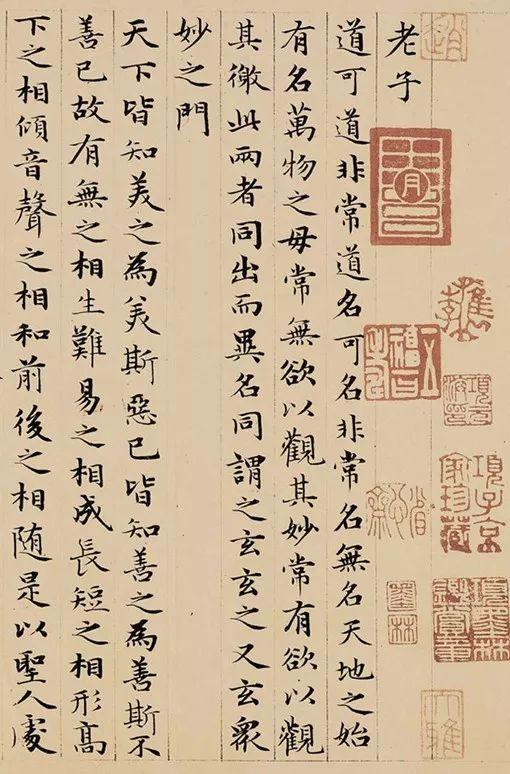 項子京家珍藏
墨林
老子
道可道非常道名可名非常名無名天地之始
有名萬物之母常無欲以觀其妙常有欲以觀
其徼此兩者同出而異名同謂之玄玄之又玄衆
妙之門
天下皆知美之為美斯惡已皆知善之為善斯不
善已故有無之相生難易之相成長短之相形髙
下之相傾音聲之相和前後之相随是以聖人處